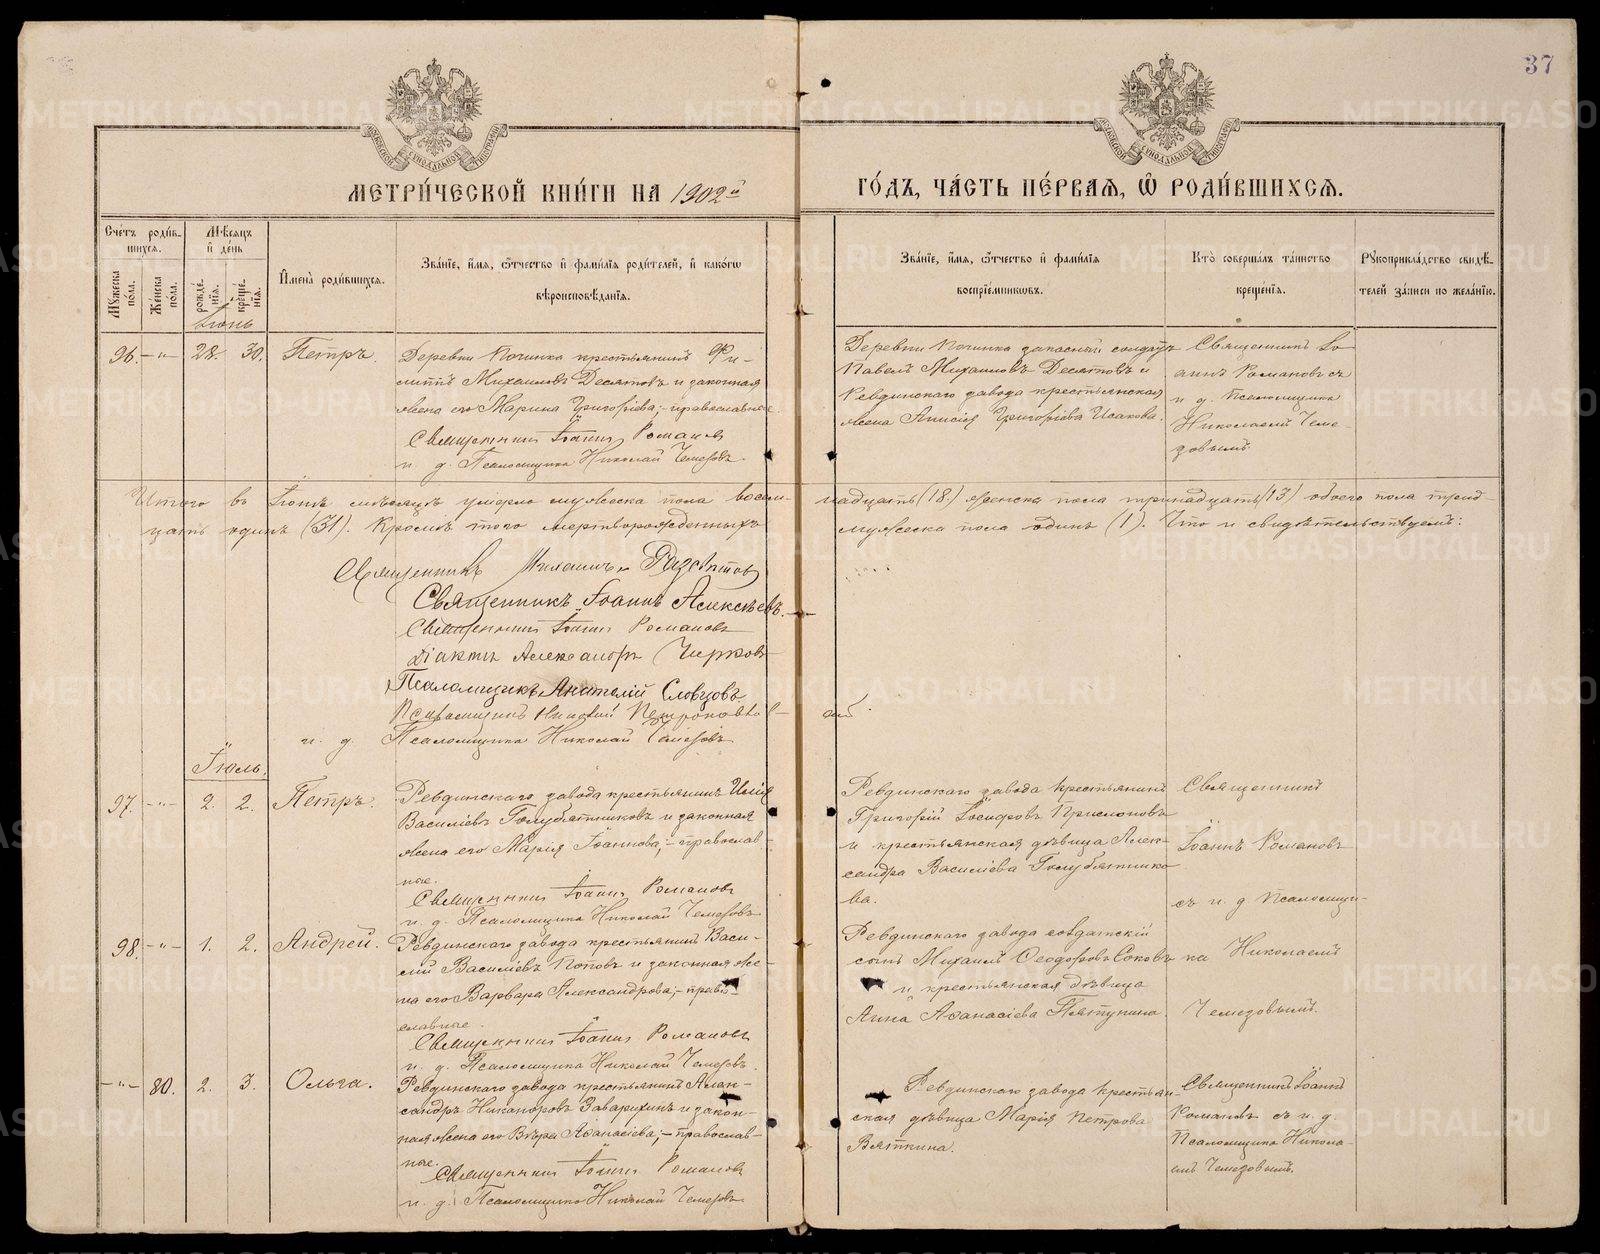 37
МОСКОВСКОЙ СѴНОДАЛЬНОЙ ТИПОГРАФІИ
МОСКОВСКОЙ СѴНОДАЛЬНОЙ ТИПОГРАФІИ
МЕТРИ́ЧЕСКОЙ КНИ́ГИ НА 1902й
ГО́ДЪ, ЧА́СТЬ ПЕ́РВАѦ, Ѡ҆ РОДИ́ВШИХСѦ.
Сче́тъ роди́в-
шихсѧ.
Мꙋ́жеска по́ла.
Же́нска по́ла.
Мѣ́сѧцъ и҆ де́нь
рожде́нїѧ.
креще́нїѧ.
И҆мена̀ роди́вшихсѧ.
Зва́нїе, и҆́мѧ, ѻ҆́тчество и҆ фами́лїѧ роди́телей, и҆ како́гѡ
вѣроисповѣ́данїѧ.
Зва́нїе, и҆́мѧ, ѻ҆́тчество и҆ фами́лїѧ
воспрїе́мникѡвъ.
Кто̀ соверша́лъ та́инство
креще́нїѧ.
Рꙋкоприкла́дство свидѣ́-
телей за́писи по жела́нїю.
Іюнь
96. -"- 28. 30. Петръ.
Деревни Починка крестьянинъ Фи-
липпъ Михаиловъ Десятовъ и законная
жена его Марина Григорїева; - православные.
Священникъ Іоаннъ Романовъ
и. д. Псаломщика Николай Чемезовъ.
Деревни Починка запасный солдатъ
Павелъ Михаиловъ Десятовъ и
Ревдинскаго завода крестьянская
жена Анисія Григорїева Исакова.
Священникъ Іо-
аннъ Романовъ съ
и. д. Псаломщика
Николаемъ Чеме-
зовымъ.
Итого въ Іюнѣ мѣсяцѣ умерло мужеска пола восем-
надцать (18.) женска пола тринадцать (13) обоего пола трид-
цать одинъ (31). Кромѣ того мертворожденныхъ
мужеска пола одинъ (1). Что и свидѣтельствуемъ:
Священникъ
Священникъ Іоаннъ Алексѣевъ.
Священникъ Іоаннъ Романовъ
Діаконъ Александръ Чирковъ
Псаломщикъ Анатолій Словцовъ.
Псаломщикъ
и. д. Псаломщика Николай Чемезовъ
Іюль.
97. -"- 2. 2. Петръ.
Ревдинскаго завода крестьянинъ Илія
Василїевъ Голубятниковъ и законная
жена его Марія Іоаннова; - православ-
ные.
Священникъ Іоаннъ Романовъ
и. д. Псаломщика Николай Чемезовъ
Ревдинскаго завода крестьянинъ
Григорій Іосифовъ Прислоновъ
и крестьянская дѣвица Алек-
сандра Василїева Голубятнико-
ва.
Священникъ
Іоаннъ Романовъ
съ и. д Псаломщи-
98. -"- 1. 2. Андрей.
Ревдинскаго завода крестьянинъ Васи-
лій Василїевъ Поповъ и законная же-
на его Варвара Александрова; - право-
славные.
Священникъ Іоаннъ Романовъ
и. д. Псаломщика Николай Чемезовъ.
Ревдинскаго завода солдатскій
сынъ Михаилъ Ѳеодоровъ Соковъ
и крестьянская дѣвица
Анна Аѳанасїева Пятунина.
ка Николаемъ
Чемезовымъ.
-"- 80. 2. 3. Ольга.
Ревдинскаго завода крестьянинъ Алек-
сандръ Никаноровъ Заварихинъ и закон-
ная жена его Вѣра Аѳанасїева; - православ-
ные.
Священникъ Іоаннъ Романовъ
и. д. Псаломщика Николай Чемезовъ
Ревдинскаго завода крестьян-
ская дѣвица Марія Петрова
Вяткина.
Священникъ Іоаннъ
Романовъ съ и. д.
Псаломщика Никола-
емъ Чемезовымъ.
METRIKI.GASO-URAL.RU